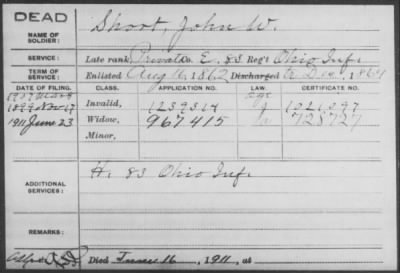 DEAD
NAME OF SOLDIER: Shoot, John W.
SERVICE: Late rank, Private Co. E, 83 Reg't Ohio Inf.
TERM OF SERVICE: Enlisted Aug 16, 1862 Discharged Dec , 1864
DATE OF FILING. CLASS. APPLICATION NO. LAW. CERTIFICATE NO.
1899 Nov 17 Invalid, 1239314 1021097
1911 June 23 Widow, 967415 728727
Minor,
ADDITIONAL SERVICES: H. 83 Ohio Inf.
REMARKS:
Died June 16, 1911, at